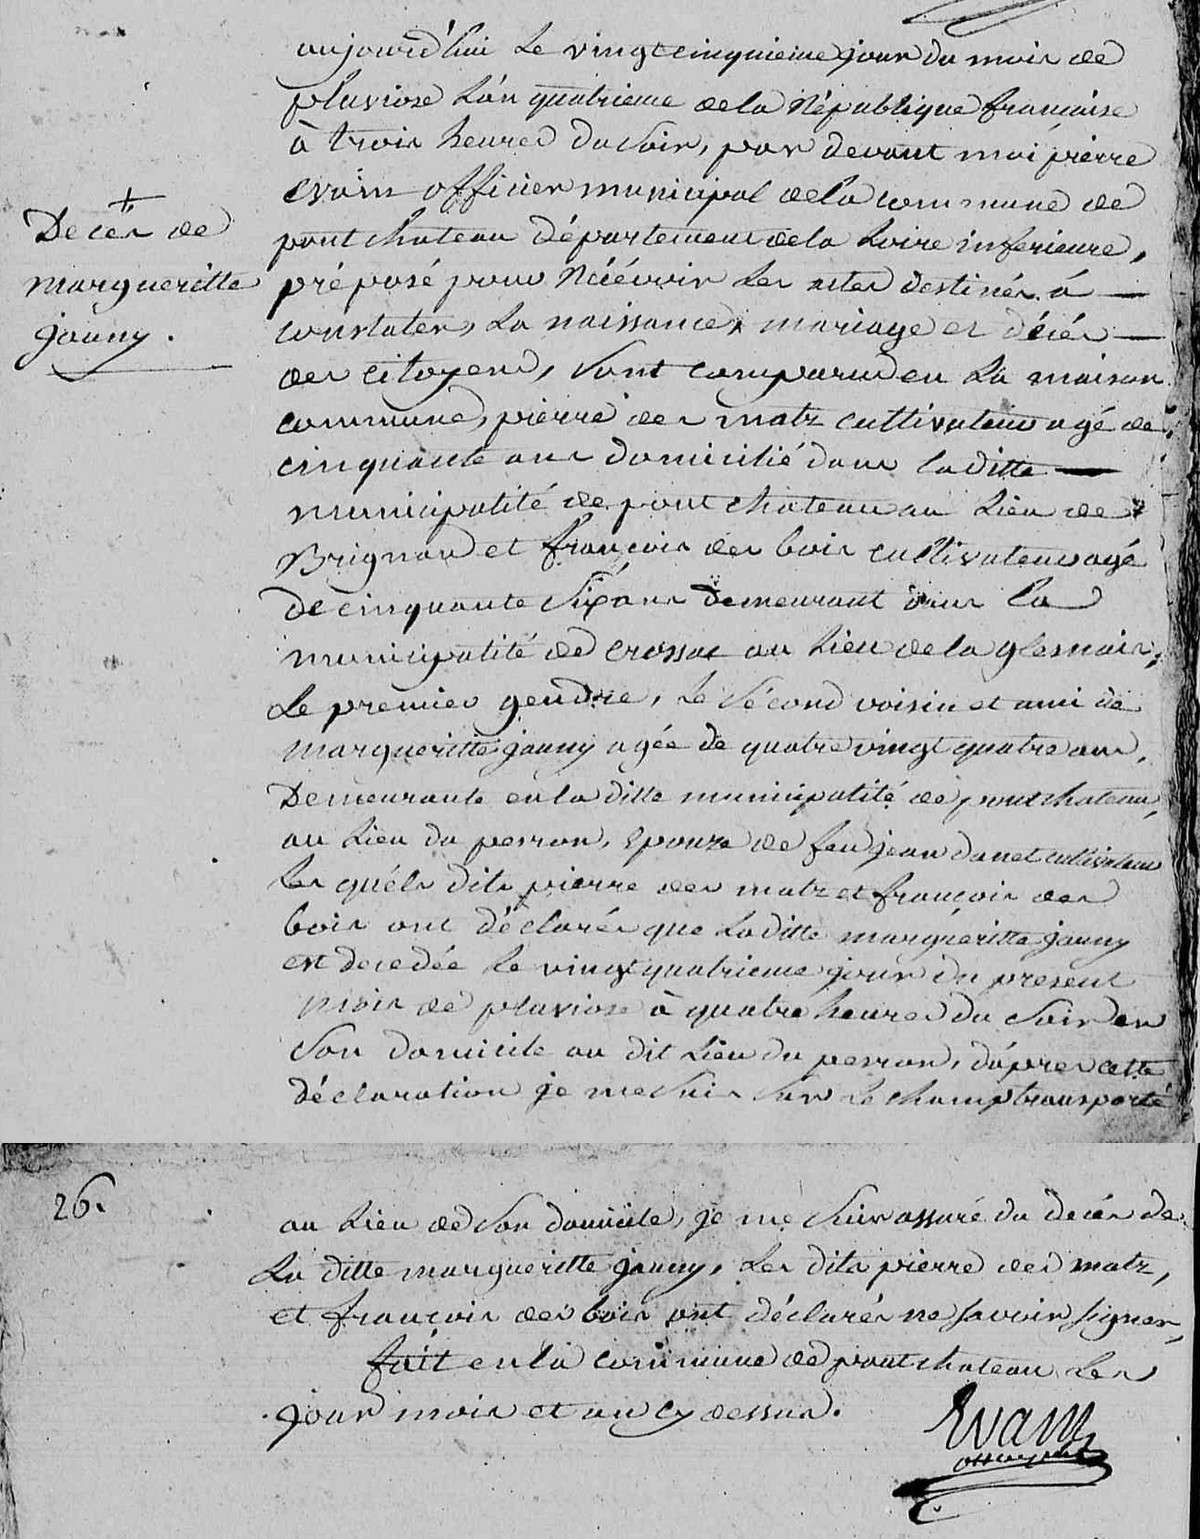 aujourd'hui Le vingt cinquieme jour du mois de
pluviose L'an quatrieme de la République française
à trois heures du soir, par devant moi pierre
evain officier municipal de la commune de
pont chateau département de la Loire inferieure,
préposé pour Récévoir Les actes destinés à
constater, La naissance, mariage et décés
des citoyens, sont comparus en La maison
commune, pierre des matz cultivateur agé de
cinquante ans domicilié dans la ditte
municipalité de pont chateau au Lieu de
Brignan et françois des bois cultivateur agé
de cinquante six ans demeurant dans la
municipalité de crossac au Lieu de la
Le premier gendre, Le sécond voisin et ami de
margueritte jauny agée de quatre vingt quatre ans,
Demeurante en la ditte municipalité de pontchateau,
au Lieu du perron, Epouze de feu jean danet cultivateur
Les quéls dits pierre des matz et françois des
bois ont déclarés que La ditte margueritte jauny
est decedée Le vingt quatrieme jour du present
mois de pluviose à quatre heures du soir en
son domicile au dit Lieu du perron, d'apres cette
déclaration je me suis sur Le champ transporté
Decés de
margueritte
jauny.
26.
au Lieu de son domicile, je me suis assuré du decés de
La ditte margueritte jauny, Les dits pierre des matz,
et françois des bois ont déclarés ne savoir signer,
fait en la commune de pont chateau Les
jour mois et an cy dessus.
Evain